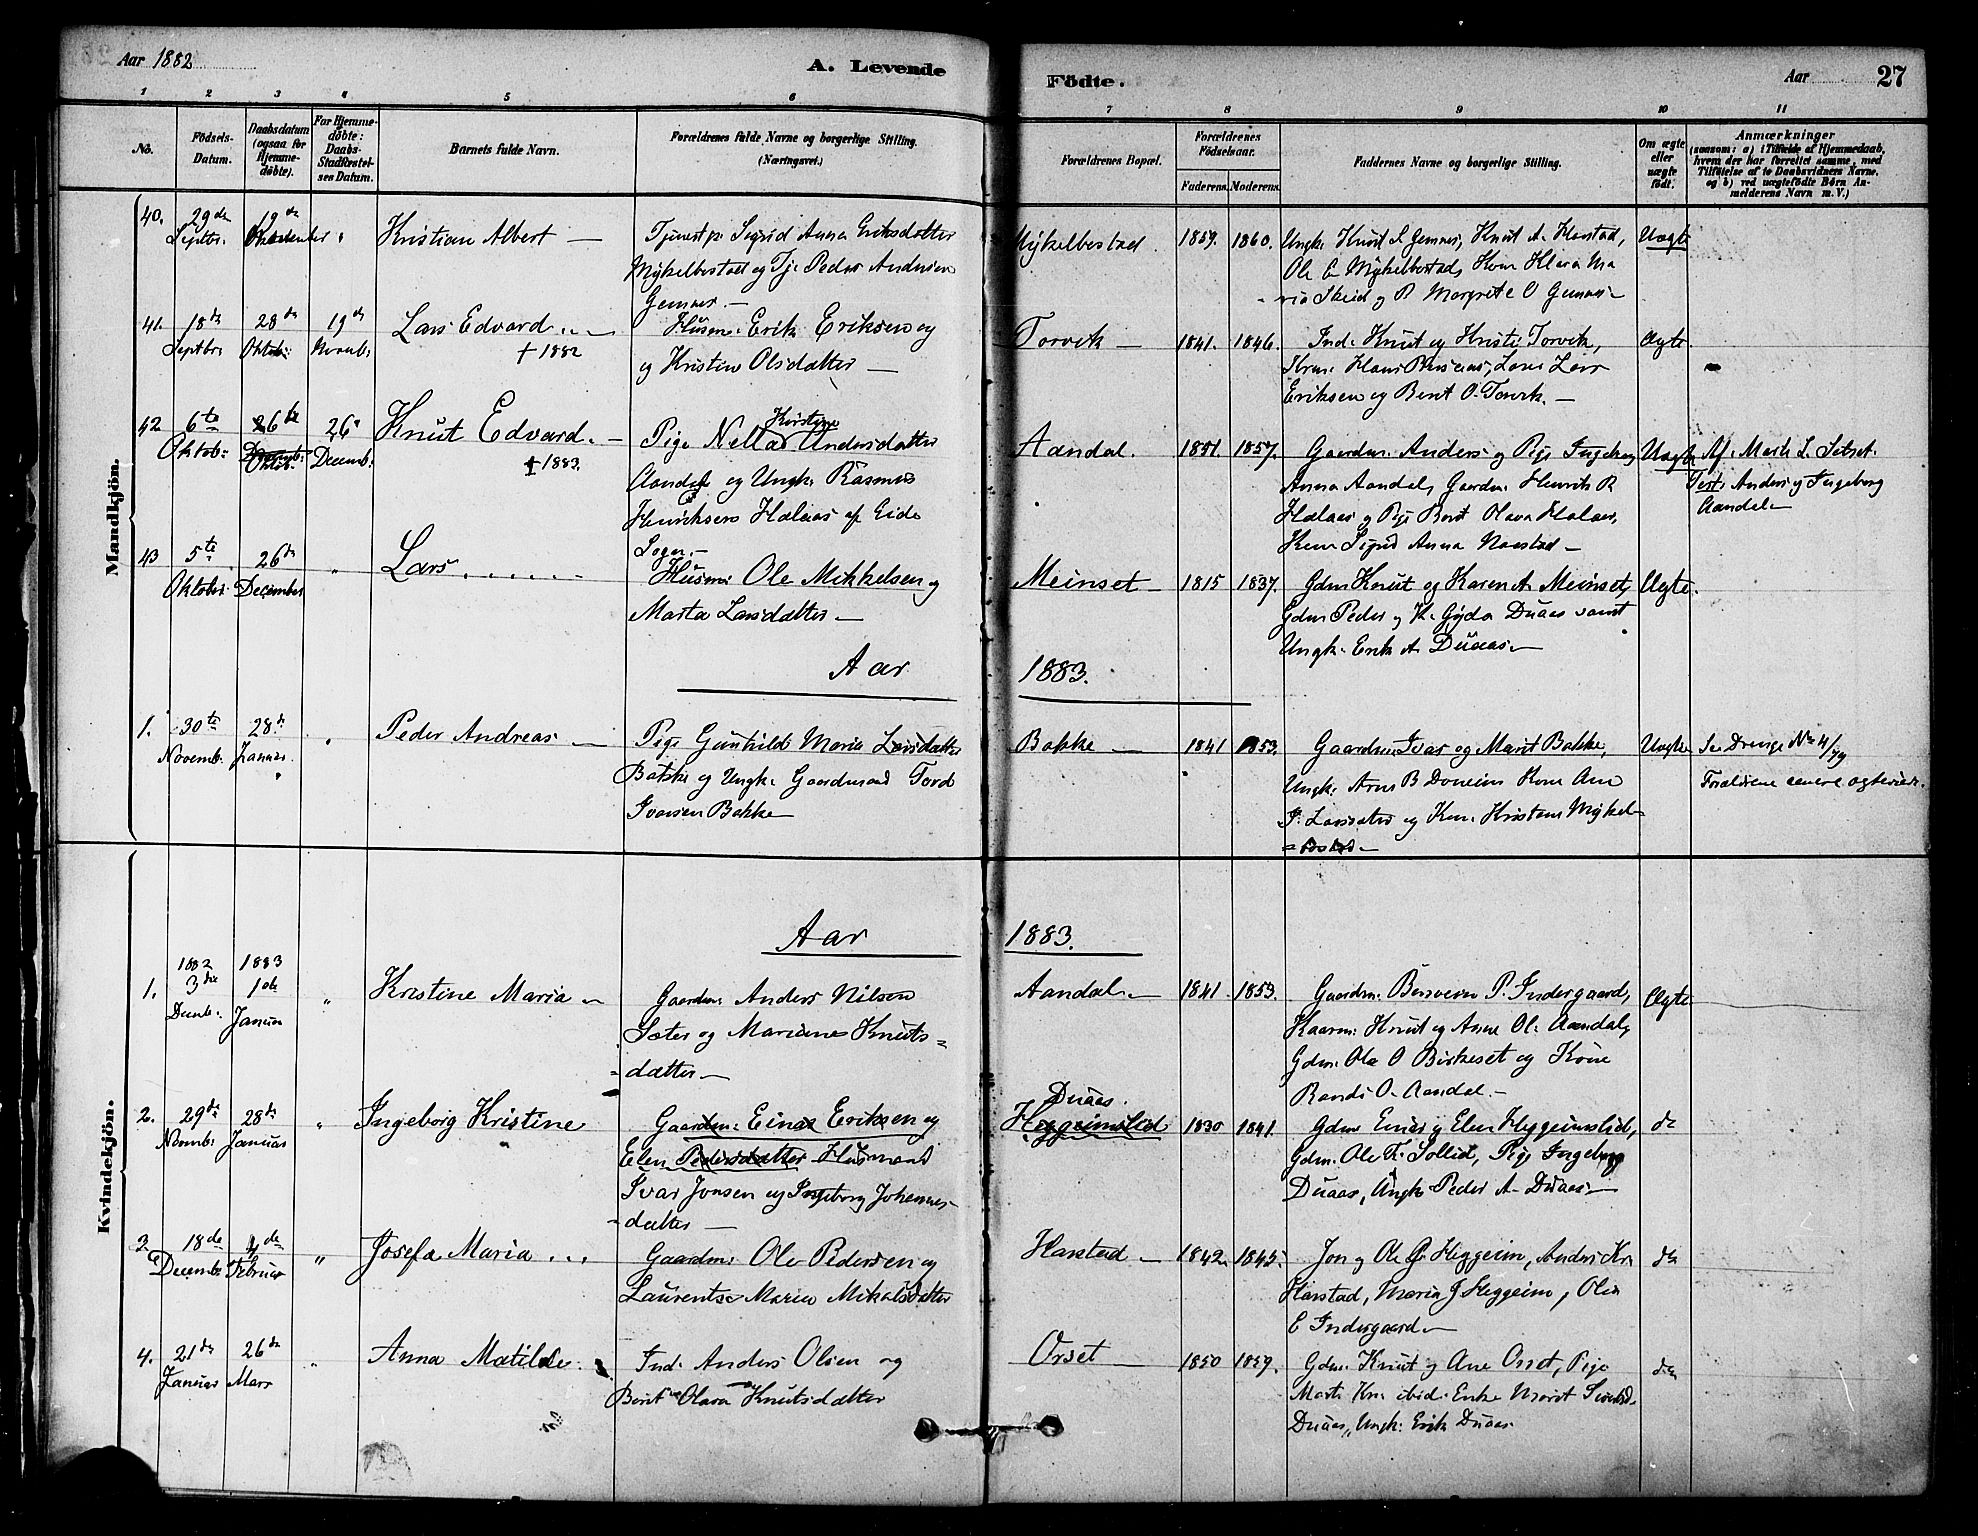 Aar 1882
A. Levende
Födte.
Aar
27
1 2 3 4 5 6 7 8 9 10 11
No.
Födsels-
Datum.
Daabsdatum
(ogsaa for
Hjemme-
döbte).
For Hjemme-
döbte:
Daabs-
Stadfæstel-
ses Datum.
Barnets fulde Navn.
Forældrenes fulde Navne og borgerlige Stilling.
(Næringsvei.)
Forældrenes Bopæl.
Forældrenes
Födselsaar.
Faderens.
Moderens.
Faddernes Navne og borgerlige Stilling.
Om ægte
eller
uægte
födt.
Anmærkninger
(saasom: a) i Tilfælde af Hjemmedaab,
hvem der har forrettet samme, med
Tilföielse af to Daabsvidners Navne.
og b) ved uægtefödte Börn An-
melderens Navn m. V.)
Mandkjön.
40. 29de Septbr.
19de
Kristian Albert —
Tjenestp. Sigrid Anna Eriksdatter
Myklebostad og Tj. Peder Andersen
Gemnes. —
Myklebostad. 1859. 1860.
Ungk. Knut S. Gemnes, Knut A. Harstad,
Ole E Myklebostad, Kone Klara Ma
ria Skeid og P. Margrete O Gemnes
Uægte
41. 18de Septbr.
28de Oktob:
19de Novmb:
Lars Edvard
+ 1882
Husm. Erik Eriksen og
og Kristine Olsdatter —
Torvik — 1841. 1846.
Ind. Knut og Kristi Torvik,
Eriksen og Berit O. Torvik. —
Ægte.
42 6te Oktob:
26de Decemb: Oktob:
26. Decemb:
Knut Edvard. —
+ 1883.
Kirstine
Pige Nella Andersdatter
Aandal og Ungk. Rasmus
Henriksen Halaas af Eide
Sogn. —
Aandal. 1851. 1857.
Gaardm. Anders og Pige Ingeborg
Anna Aandal, Gaardm. Henrik R
Halaas og Pige Berit Olava Halaas,
Kone Sigrid Anna Naastad —
Uægte
Af. Marit L. Sætset.
Test: Anders og Ingeborg
Aandal
43 5te Oktober
26de December
Lars
Husm: Ole Mikkelsen og
Marta Larsdatter —
Meinset — 1815 1837.
Gdm Knut og Karen A. Meinset,
Gdm Peder og K. Gyda Duaas samt
Ungk. Erik A. Duaas —
Ægte.
Aar 1883.
1. 30te Novemb:
28de Januar
Peder Andreas —
Pige Gunhild Maria Larsdatter
Bakke og Ungk. Gaardmand Tord
Ivarsen Bakke
Bakke — 1841 1853.
Gaardm. Ivar og Marit Bakke,
Ungk. Arne B Doneim Kone Ane
I. Larssæter og Kone Kristens Mykel
=bostad —
Uægte
Se Drenge No 4/79
Forældrene senere ægteviede.
Kvindekjön.
Aar 1883.
1. 1882 3die Decemb:
1883 1ste Januar
Kristine Maria —
Gaardm: Anders Nilsen
Sæter og Mariane Knuts=
=datter —
Aandal — 1841. 1853.
Gaardm. P. Indergaard,
Kaarm. Knut og Anne Ol. Aandal,
Gdm. Ole O Birkeset og Kone
Randi O. Aandal. —
Ægte
2. 29de Novmb:
28de Januar
Ingeborg Kristine
Gaardm: Einar Eriksen og
Elen Pedersdatter Husmand
Ivar Jonsen og Ingeborg Johannes-
=datter —
Duaas.
Heggeimslid 1830 1841.
Gdm Einar og Elen Heggeimslid,
Gdm. Ole T. Sollid, Pige Ingeborg
Duaas, Ungk Peder A. Duaas —
do
3. 18de Decemb:
4de Februar
Josefa Maria
Gaardm: Ole Pedersen og
Laurentse Maria Mikalsdatter
Harstad — 1842. 1845.
Jon og Ole G Heggeim, Anders Kn
Harstad, Maria J Heggeim, Olia
E Indergaard —
do
4. 21de Januar
26de Mars
Anna Matilde
Ind. Anders Olsen og
Berit Olava Knutsdatter
Orset 1850 1859.
Gdm. Knut og Ane Orset, Pige
Marit Kn. ibid. Enke Marit
Duaas, Ungk. Erik Duaas
do